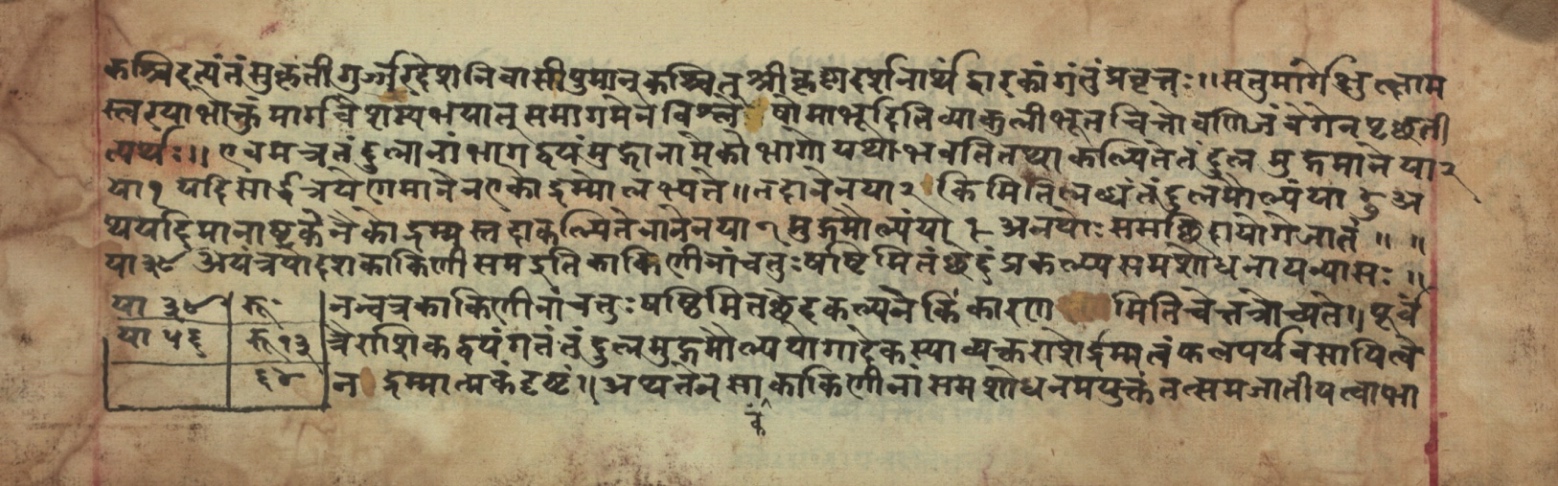 कश्चिदत्यंतंसुकृतीगुर्ज्जरदेशनिवासीपुमान्कश्चित्श्रीकृष्णदर्शनार्थंद्वारकांगंतुंप्रवृत्तः॥सतुमार्गेक्षुत्क्षाम
स्त्वरयाभोक्तुंमार्गवैशम्यभयात्समागमेनविश्ले षोमाभूदितिव्याकुलीभूतचित्तोवणिजंवेगेनपृच्छती
त्यर्थः॥॥एवमत्रतंदुलानांभागद्वयंमुद्गानामेकोभागोयथाभवतितथाकल्पितेतंदुलमुद्गमानेया२
या१यदिसार्द्धत्रयेणमानेनएकोद्रम्मोलभ्यते॥तदानेनया२ किमितिलब्धंतंदुलमौल्यंया अ
थयदिमानाष्टकेनैकोद्रम्मस्तदाकल्पितेनानेनया१मुद्गमौल्यंया अनयोःसमच्छिदायोगेजातं॥॥
या३९ अयंत्रयोदशकाकिणीसमइतिकाकिणीनांचतुःषष्टिमितंछेदंप्रकल्प्यसमशोधनायन्यासः॥
या३९ रू॰ नन्वत्रकाकिणीनांचतुःषष्ठिमितछेदकल्पनेकिंकारण मितिचेत्तत्रोच्यते॥पूर्वं
या५६ रू१३ त्रैराशिकद्वयंगतंतंदुलमुद्गमौल्ययोगादेकस्याव्यक्तराशेर्द्रम्मात्
६४ न द्रम्मात्मकंदृष्टं॥अथतेनसाकाकिणीनांसमशोधनमयुक्तंतत्समजातीयत्वाभा
र्कं